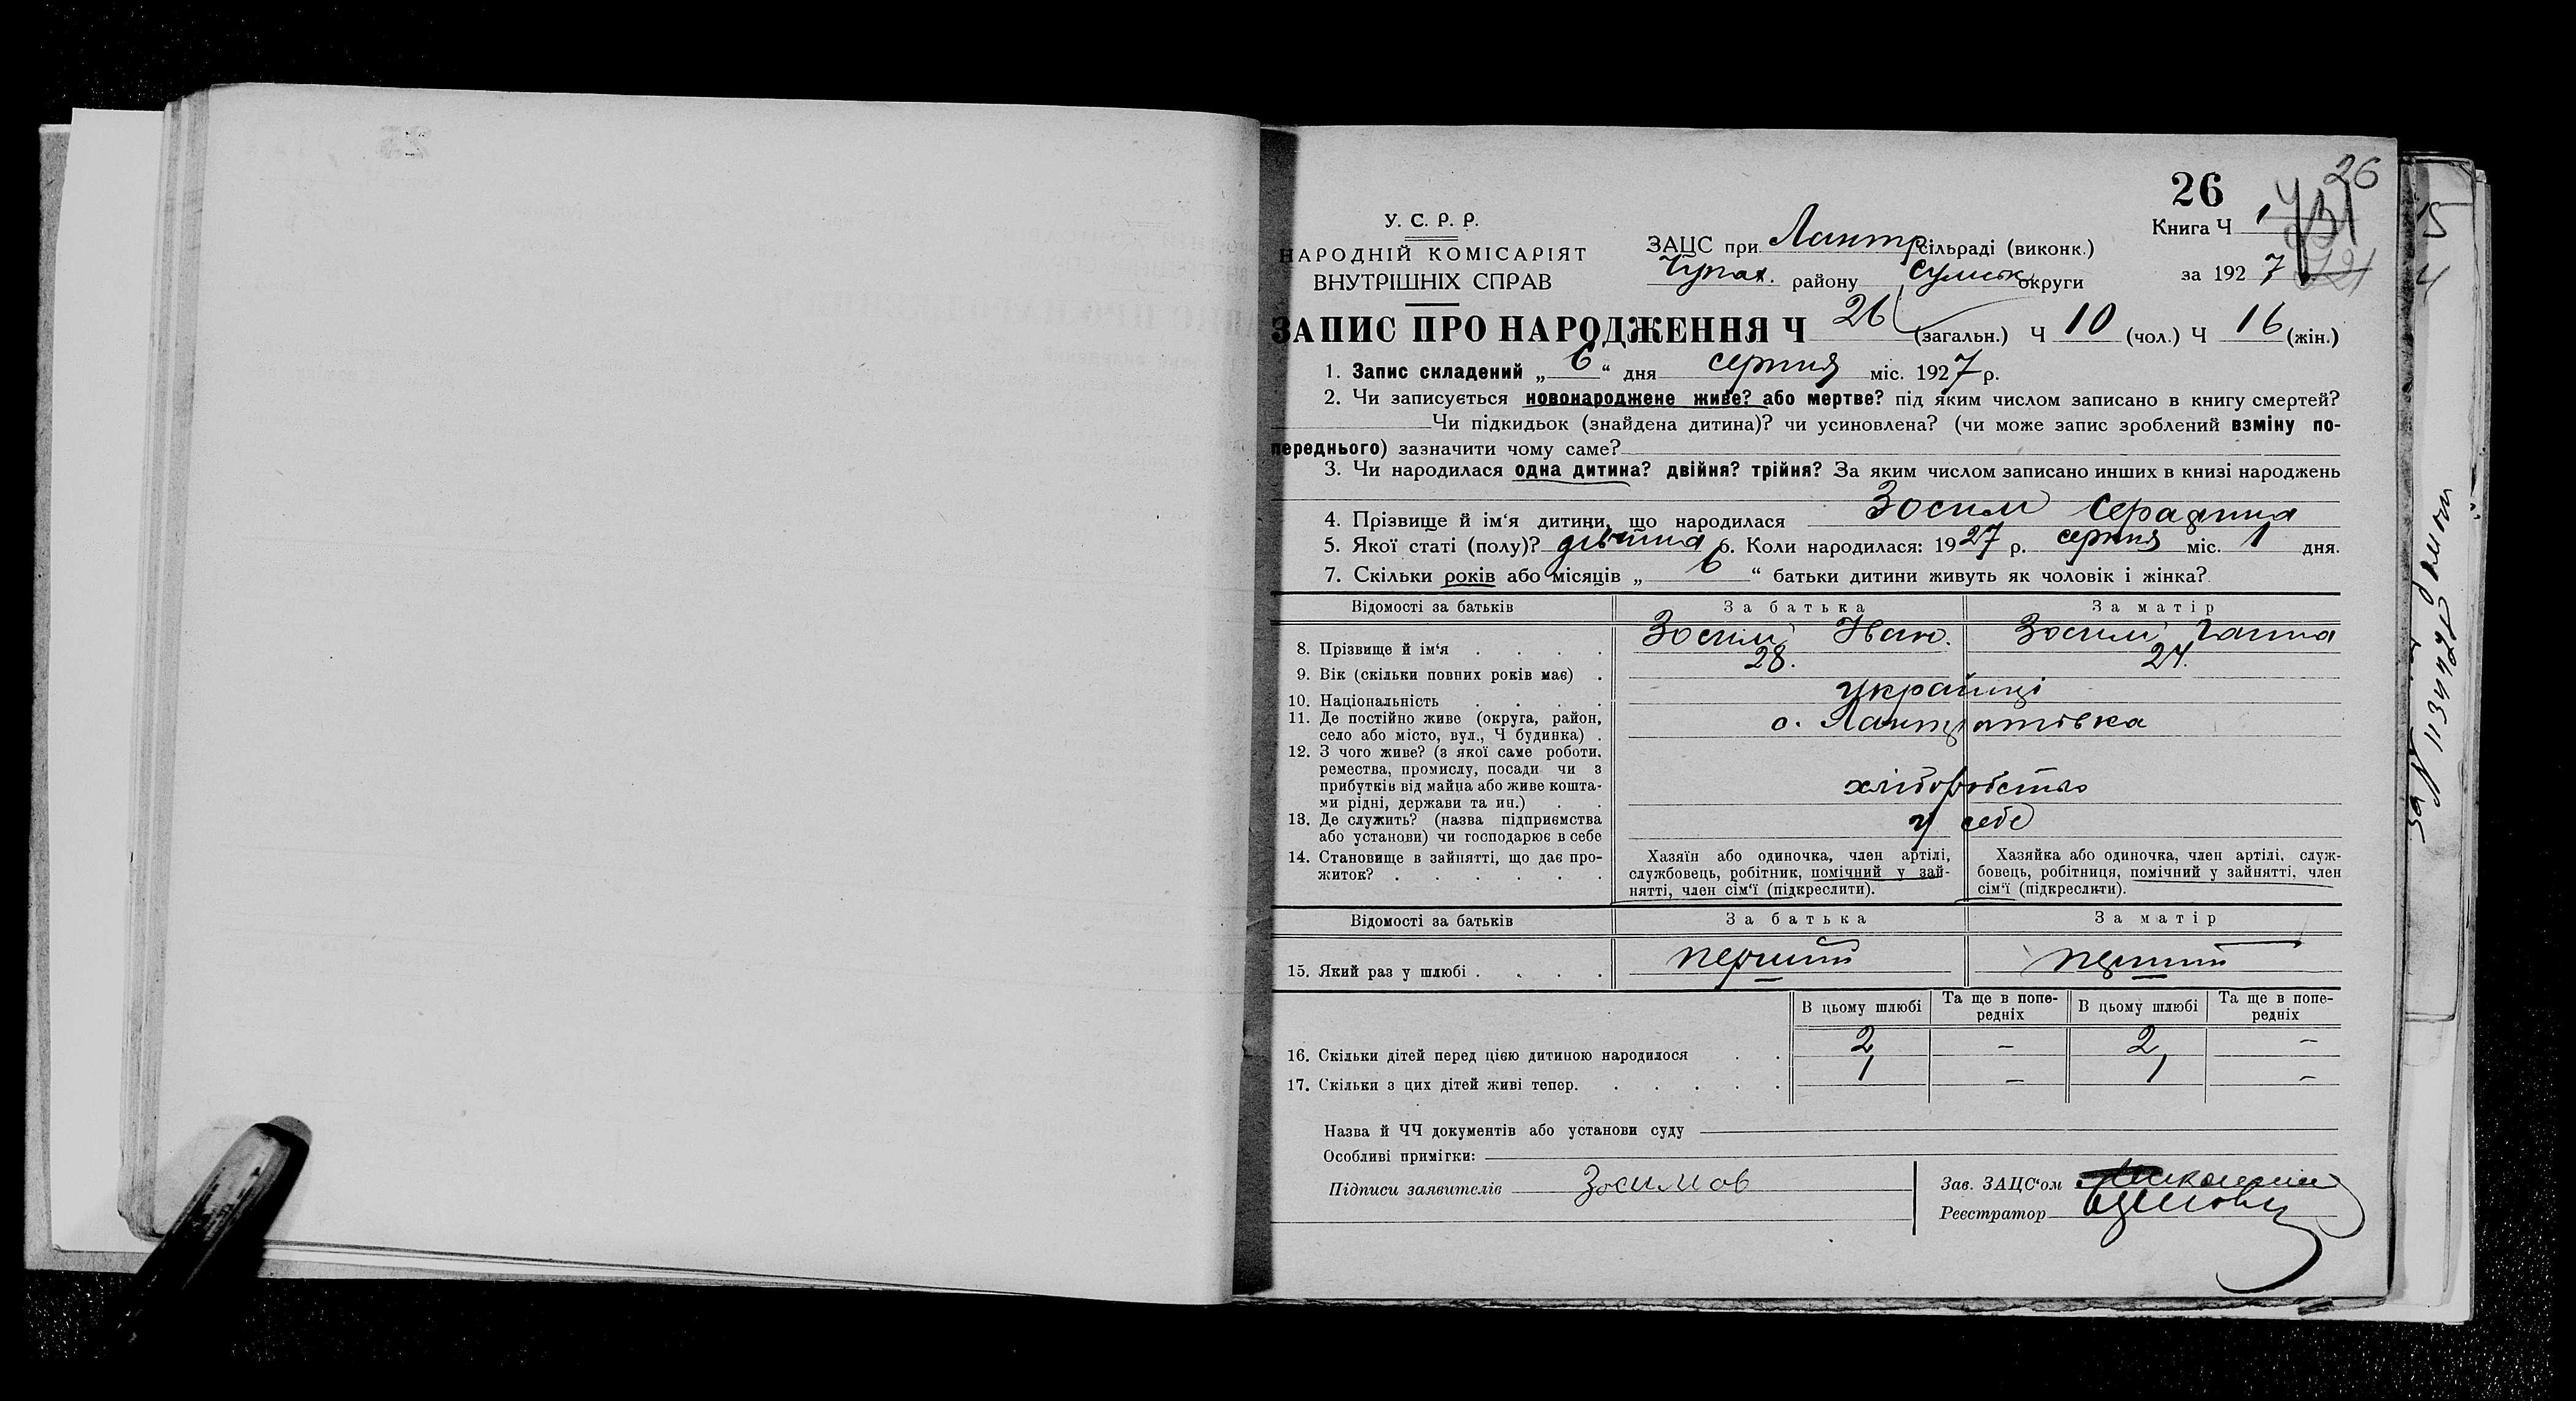 26
26
Книга Ч 1
У. С. Р. Р.
НАРОДНІЙ КОМІСАРІЯТ
ВНУТРІШНІХ СПРАВ
ЗАЦС при Лантр сільраді (виконк.)
Чупах. району Сумськ округи
за 1927
ЗАПИС ПРО НАРОДЖЕННЯ Ч 26 (загальн.) Ч 10 (чол.) Ч 16 (жін.)
1. Запис складений „ 6 “ дня серпня міс. 1927 р.
2. Чи записується новонароджене живе? або мертве? під яким числом записано в книгу смертей?
Чи підкидьок (знайдена дитина)? чи усиновлена? (чи може запис зроблений взміну по-
переднього) зазначити чому саме?
3. Чи народилася одна дитина? двійня? трійня? За яким числом записано инших в книзі народжень
4. Прізвище й ім‘я дитини, що народилася Зосим Серафима
5. Якої статі (полу)? дівчина 6. Коли народилася: 1927 р. серпня міс. 1 дня.
7. Скільки років або місяців „ 6 “ батьки дитини живуть як чоловік і жінка?
Відомості за батьків За батька За матір
8. Прізвище й ім‘я . . . . Зосим Іван. Зосим Ганна
9. Вік (скільки повних років має) . 28. 24.
10. Національність . . . . українці
11. Де постійно живе (округа, район,
село або місто, вул., Ч будинка) . с. Лантратівка
12. З чого живе? (з якої саме роботи,
ремества, промислу, посади чи з
прибутків від майна або живе кошта-
ми рідні, держави та ин.) . . хліборобство
13. Де служить? (назва підприємства
або установи) чи господарює в себе у себе
14. Становище в зайнятті, що дає про-
житок? . . . . . .
Хазяїн або одиночка, член артілі,
службовець, робітник, помічний у зай-
нятті, член сім‘ї (підкреслити).
Хазяйка або одиночка, член артілі, служ-
бовець, робітниця, помічний у зайнятті, член
сім‘ї (підкреслити).
Відомості за батьків За батька За матір
15. Який раз у шлюбі . . . . перший перший
В цьому шлюбі Та ще в попе-
редніх В цьому шлюбі Та ще в попе-
редніх
16. Скільки дітей перед цією дитиною народилося . . 2 – 2 –
17. Скільки з цих дітей живі тепер. . . . . . 1 – 1 –
Назва й ЧЧ документів або установи суду
Особливі примітки:
Підписи заявителів Зосимов
Зав. ЗАЦС‘ом
Реєстратор
15
4